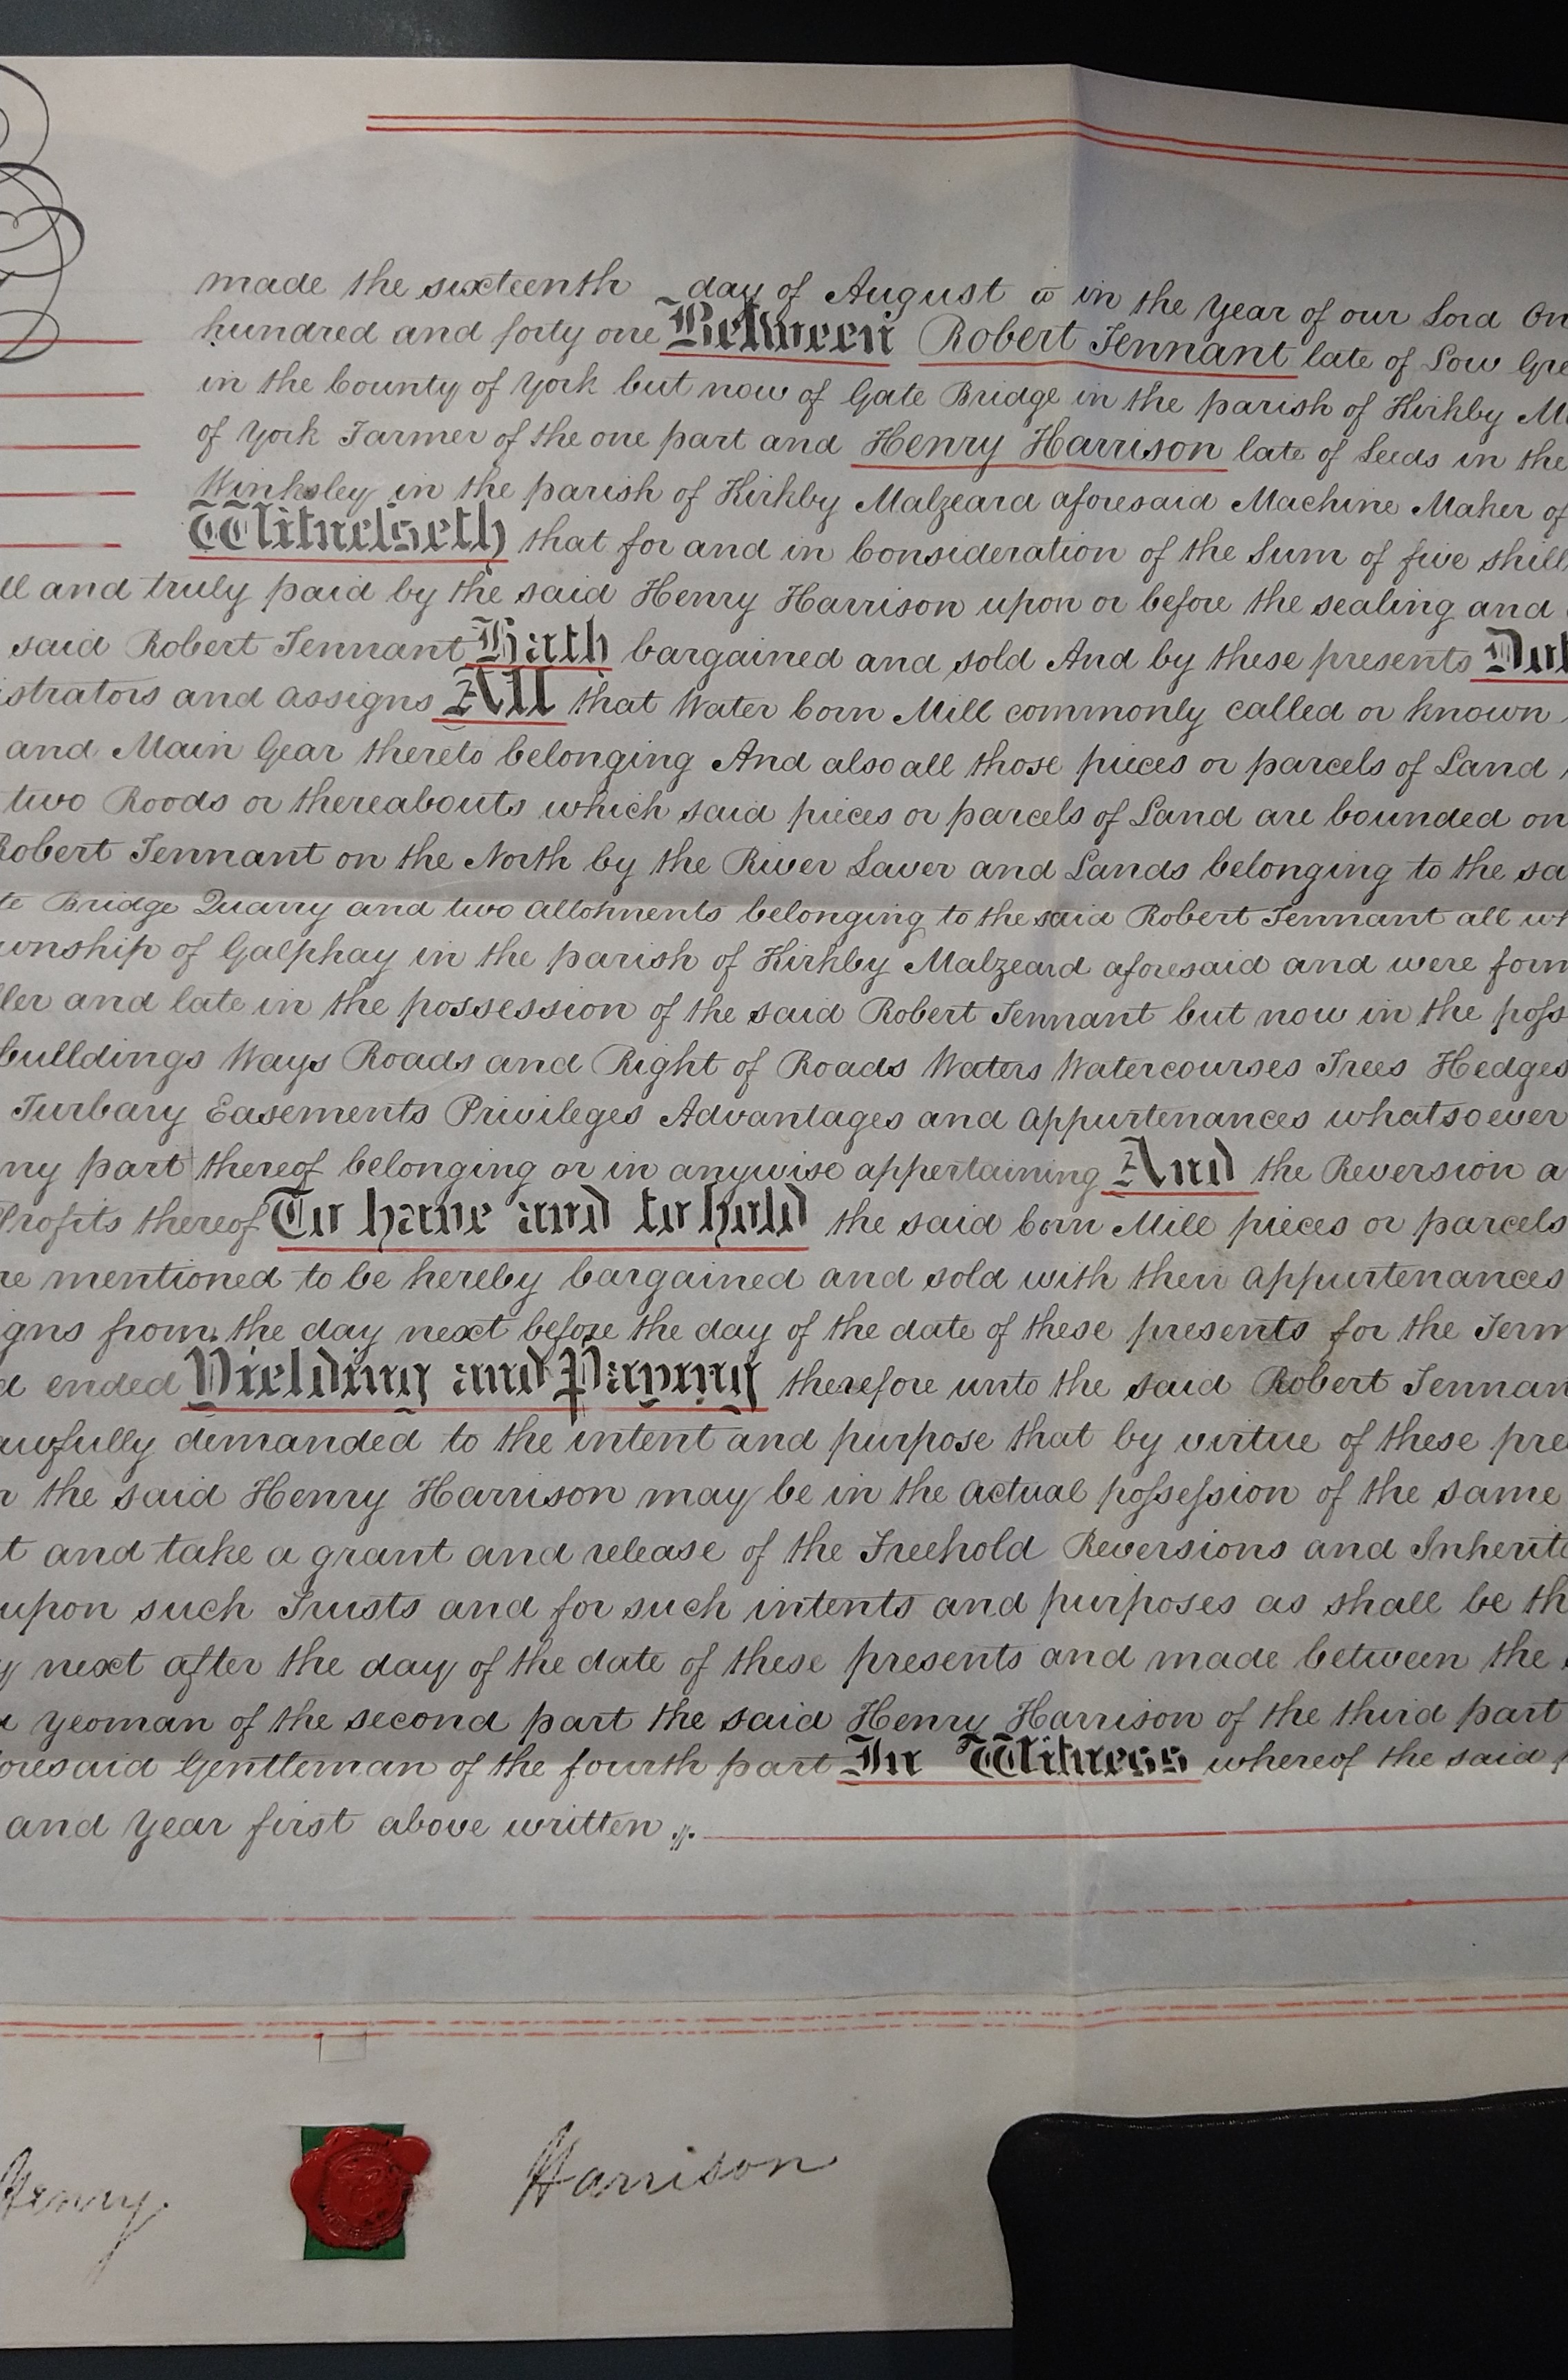 made the sixteenth day of August in the Year of our Lord On
hundred and forty one Between Robert Tennant late of Low Gre
in the County of York but now of Gate Bridge in the parish of Kirkby M
of York Farmer of the one part and Henry Harrison late of Leeds in the
Winksley in the parish of Kirkby Malzeard aforesaid Machine Maker of
Witnesseth that for and in Consideration of the Sum of five shill
ll and truly paid by the said Henry Harrison upon or before the sealing and
said Robert Tennant Hath bargained and sold And by these presents Dot
istrators and assigns All that Water Corn Mill commonly called or known
and Main Gear thereto belonging And also all those pieces or parcels of Land
two Roods or thereabouts which said pieces or parcels of Land are bounded on
Robert Tennant on the North by the River Laver and Lands belonging to the sa
te Bridge Quarry and two allotments belonging to the said Robert Tennant all wh
wnship of Galphay in the parish of Kirkby Malzeard aforesaid and were form
ller and late in the possession of the said Robert Tennant but now in the poss
buildings Ways Roads and Right of Roads Waters Watercourses Trees Hedges
Turbary Easements Privileges Advantages and appurtenances whatsoever
ny part thereof belonging or in anywise appertaining And the Reversion a
Profits thereof To have and to hold the said Corn Mill pieces or parcels
re mentioned to be hereby bargained and sold with their appurtenances
igns from the day next before the day of the date of these presents for the Term
d ended Yielding and Paying therefore unto the said Robert Tennan
awfully demanded to the intent and purpose that by virtue of these pre
r the said Henry Harrison may be in the actual possession of the same
t and take a grant and release of the Freehold Reversions and Inherita
upon such Trusts and for such intents and purposes as shall be th
y next after the day of the date of these presents and made between the s
d Yeoman of the second part the said Henry Harrison of the third part
oresaid Gentleman of the fourth part In Witness whereof the said p
and Year first above written
Henry Harrison